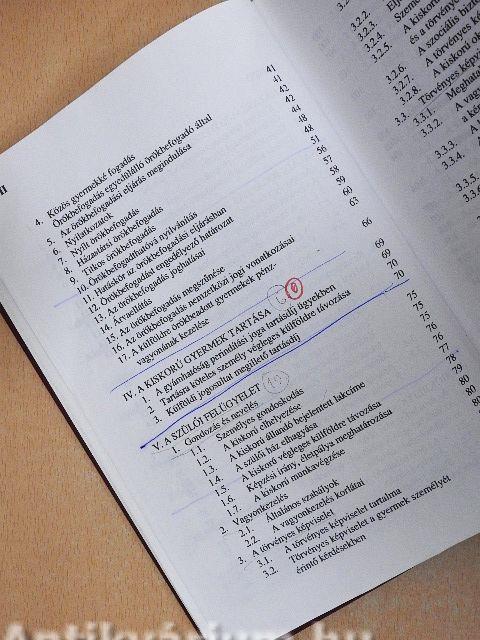 II
4. Közös gyermekké fogadás
Örökbefogadás egyedülálló örökbefogadó által
5. Az örökbefogadási eljárás megindulása
6. Nyilatkozatok
7. Nyílt örökbefogadás
8. Házastársi örökbefogadás
9. Titkos örökbefogadás
10. Örökbefogadhatóvá nyilvánítás
11. Hatáskör az örökbefogadási eljárásban
12. Örökbefogadást engedélyező határozat
13. Az örökbefogadás joghatásai
14. Árvaellátás
15. Az örökbefogadás megszűnése
16. Az örökbefogadás nemzetközi jogi vonatkozásai
17. A külföldre örökbeadott gyermekek pénz-
vagyonának kezelése
41
41
42
42
44
48
48
51
56
57
58
59
60
63
66
IV. A KISKORÚ GYERMEK TARTÁSA
1. A gyámhatóság perindítási joga tartásdíj ügyekben
2. Tartásra köteles személy végleges külföldre távozása
3. Külföldi jogosultat megillető tartásdíj
69
69
70
70
V. A SZÜLŐI FELÜGYELET
1. Gondozás és nevelés
1.1. Személyes gondoskodás
1.2. A kiskorú elhelyezése
1.3. A kiskorú állandó bejelentett lakcíme
1.4. A szülői ház elhagyása
1.5. A kiskorú végleges külföldre távozása
1.6. Képzési irány, életpálya meghatározása
1.7. A kiskorú munkavégzése
2. Vagyonkezelés
2.1. Általános szabályok
2.2. A vagyonkezelés korlátai
3. A törvényes képviselet
3.1. A törvényes képviselet tartalma
3.2. Törvényes képviselet a gyermek személyét
érintő kérdésekben
75
75
75
76
76
77
78
79
80
80
3.2.2.
3.2.3.
3.2.4.
3.2.5.
3.2.6.
3.2.7.
3.2.8.
3.3. Törvényes képvis
3.3.1.
3.3.2.
3.3.3.
3.3.4.
3.3.5.
3.3.6
Antikvárium.hu